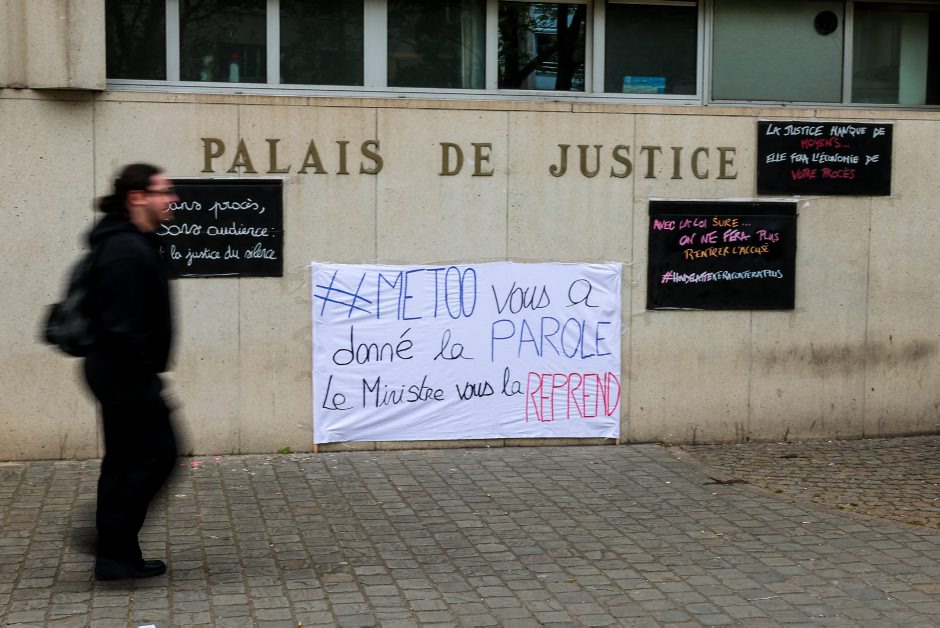 PALAIS DE JUSTICE
LA JUSTICE MANQUE DE
MOYENS...
ELLE FERA L'ÉCONOMIE DE
VOTRE PROCÈS
Sans procès,
sans audience :
la justice du silence
AVEC LA LOI SURE...
ON NE FERA PLUS
RENTRER L'ACCUSÉ
##METOO vous a
donné la PAROLE
Le Ministre vous la REPREND